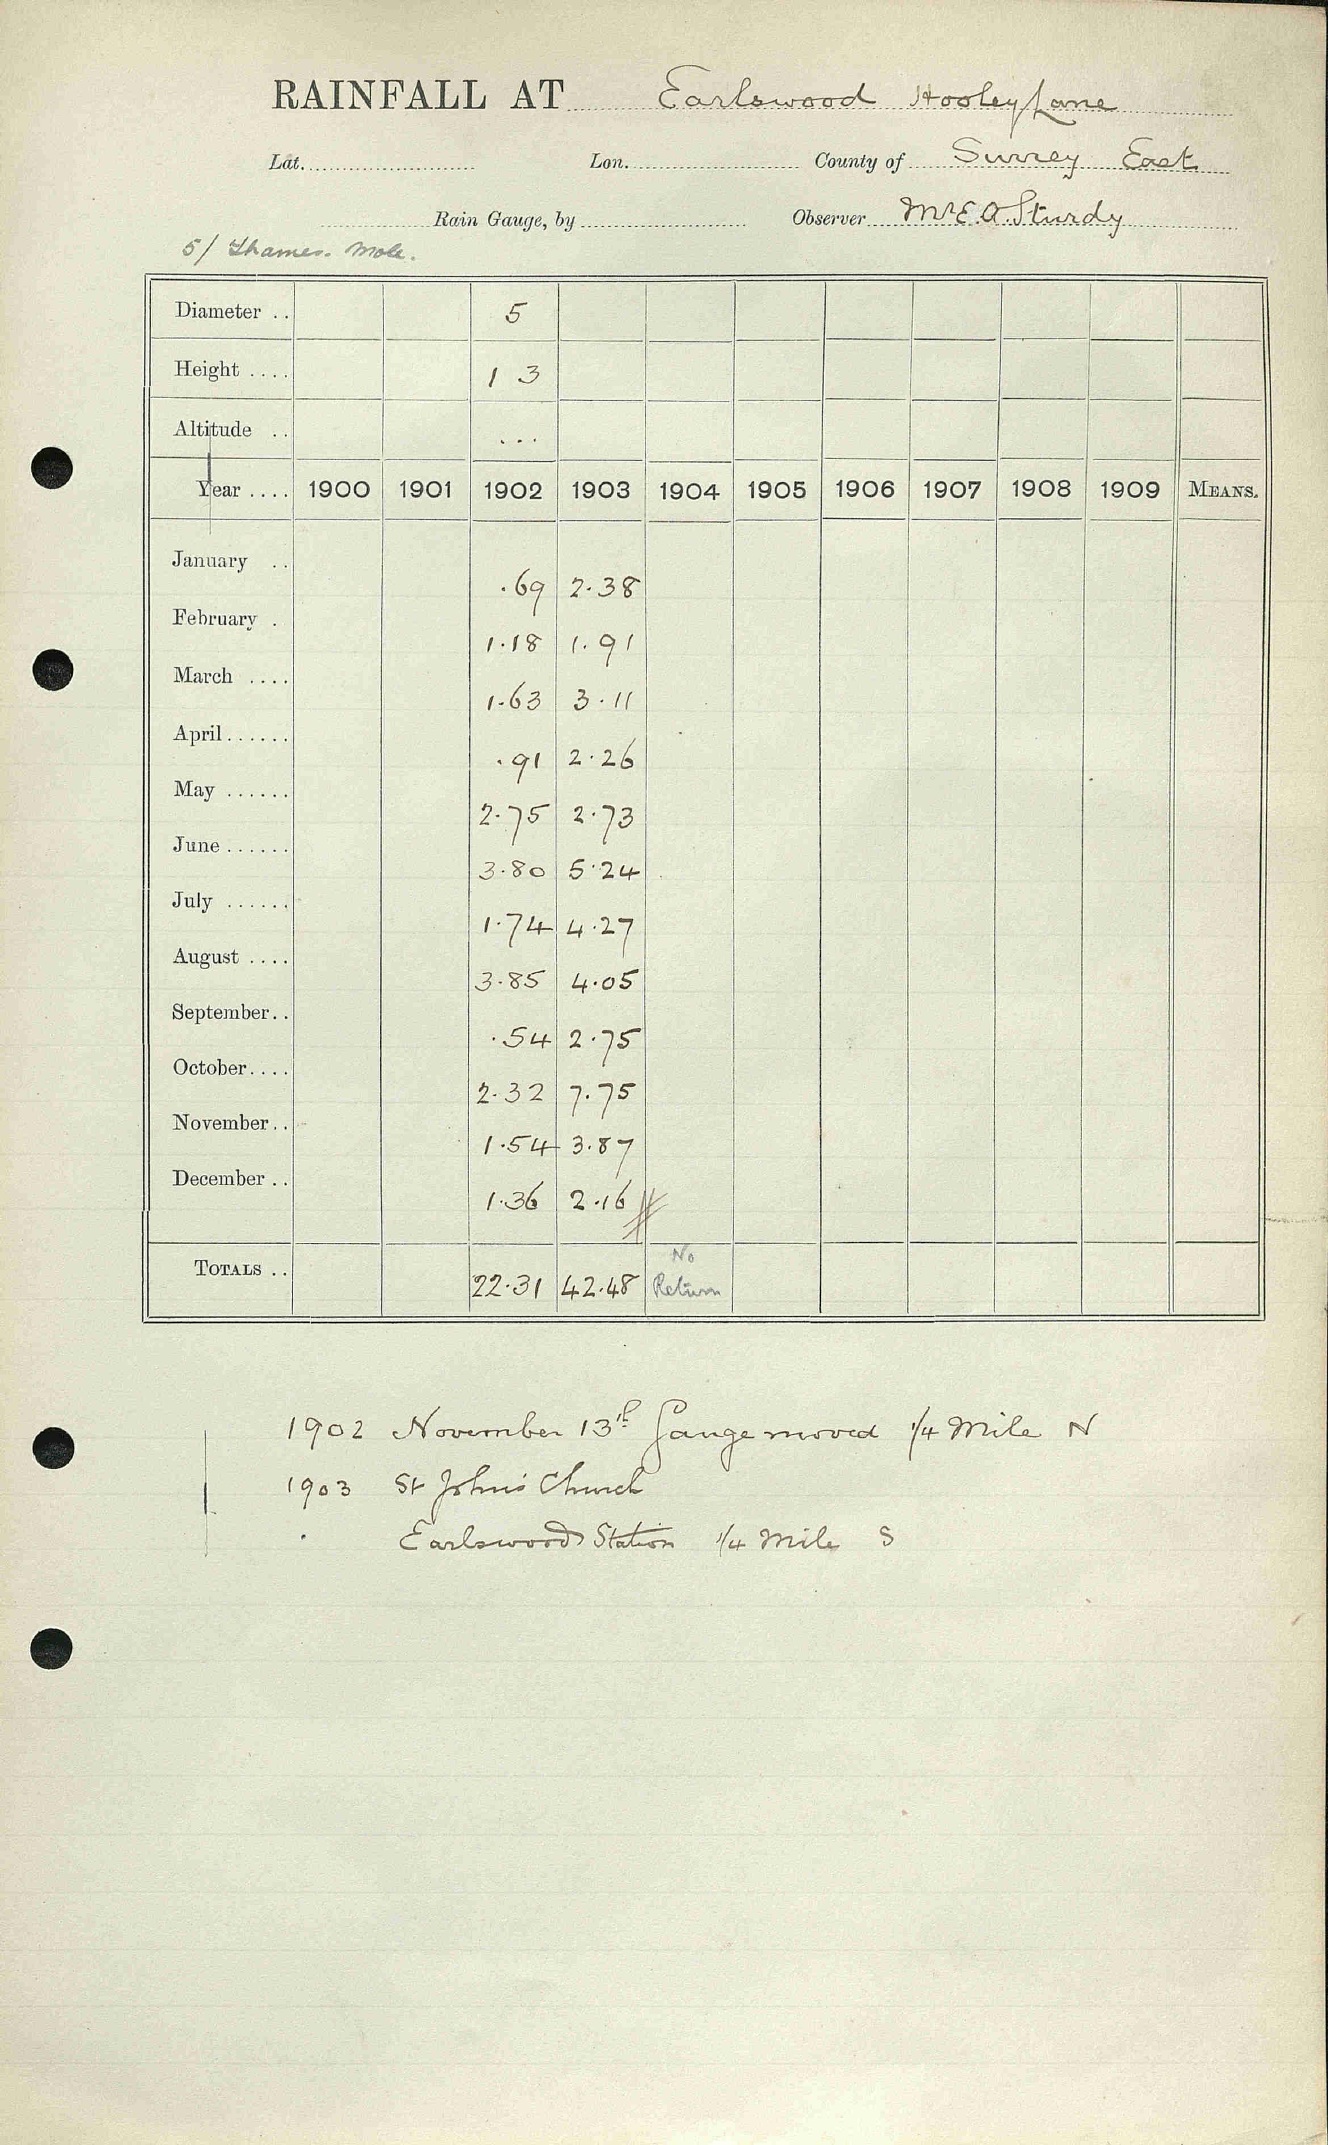 RAINFALL AT Earlswood Hooley Lane
Lat. Lon. County of Surrey East
Rain Gauge, by Observer Mr E. A. Sturdy
5/ Thames. Mole.
Diameter .. 5
Height .... 1 3
Altitude .. ...
Year .... 1900 1901 1902 1903 1904 1905 1906 1907 1908 1909 MEANS.
January .. .69 2.38
February . 1.18 1.91
March .... 1.63 3.11
April...... .91 2.26
May ...... 2.75 2.73
June ...... 3.80 5.24
July ...... 1.74 4.27
August .... 3.85 4.05
September.. .54 2.75
October.... 2.32 7.75
November.. 1.54 3.87
December .. 1.36 2.16
TOTALS .. 22.31 42.48 No Return
1902 November 13th Gauge moved 1/4 Mile N
1903 St John's Church
Earlswood Station 1/4 Mile S